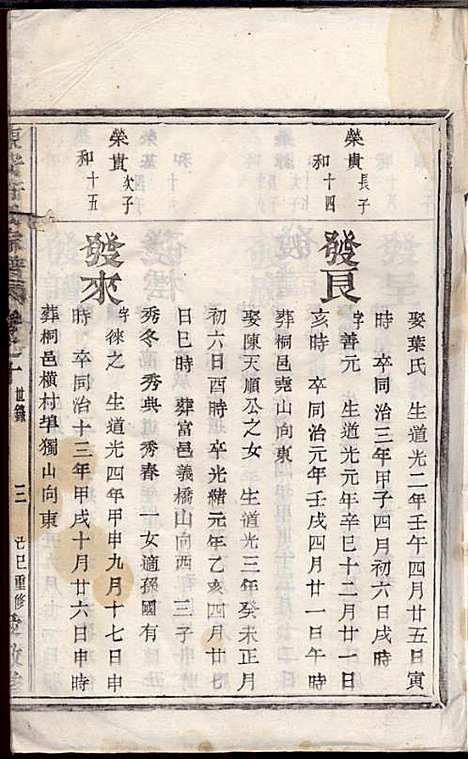 娶葉氏　生道光二年壬午四月廿五日寅
時　卒同治三年甲子四月初六日戌時
榮貴長子
和十四
發良
字善元　生道光元年辛巳十二月廿一日
亥時　卒同治元年壬戌四月廿一日午時
葬桐邑堯山向東
娶陳天順公之女　生道光三年癸未正月
初六日酉時　卒光緒元年乙亥四月廿七
日巳時　葬富邑義橋山向西　三子
秀冬　秀典　道秀春　一女適孫國有
榮貴次子
和十五
發來
字徠之　生道光四年甲申九月十七日申
時　卒同治十三年甲戌十月廿六日申時
葬桐邑橫村埠獨山向東
世錄
三
己巳重修